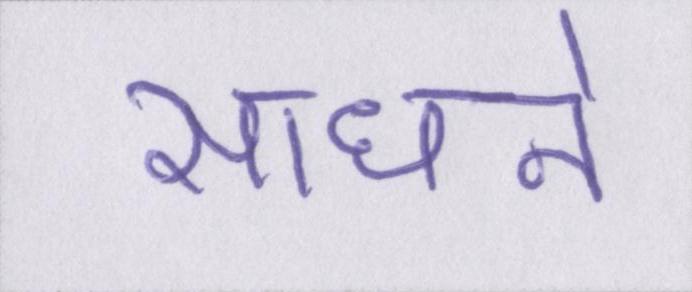 साधने